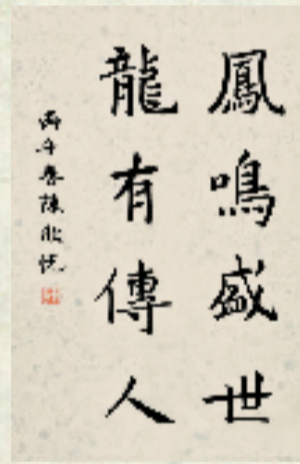 鳳鳴盛世
龍有傳人
丙午春陳